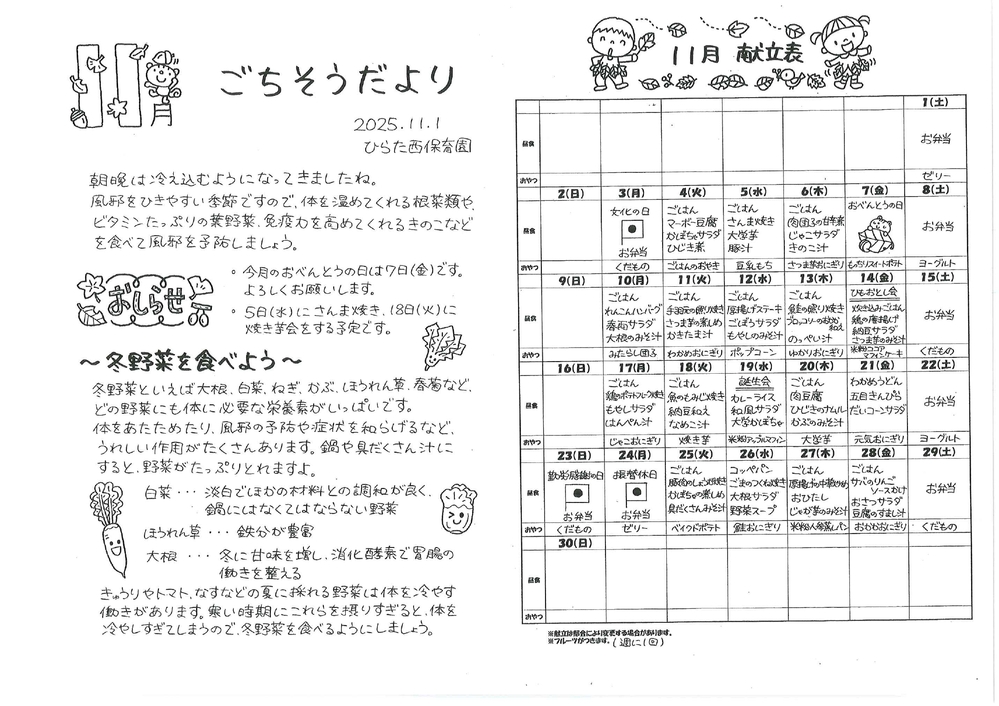 11
ごちそうだより
2025.11.1
ひらた西保育園
朝晩は冷え込むようになってきましたね。
風邪をひきやすい季節ですので、体を温めてくれる根菜類や、
ビタミンたっぷりの葉野菜、免疫力を高めてくれるきのこなど
を食べて風邪を予防しましょう。
おしらせ
○ 今月のおべんとうの日は7日(金)です。
よろしくお願いします。
○ 5日(水)にさんま焼き、18日(火)に
焼き芋会をする予定です。
～冬野菜を食べよう～
冬野菜といえば大根、白菜、ねぎ、かぶ、ほうれん草、春菊など、
どの野菜にも体に必要な栄養素がいっぱいです。
体をあたためたり、風邪の予防や症状を和らげるなど、
うれしい作用がたくさんあります。鍋や具だくさん汁に
すると、野菜がたっぷりとれますよ。
白菜・・・淡白でほかの材料との調和が良く、
鍋にはなくてはならない野菜
ほうれん草・・・鉄分が豊富
大根・・・冬に甘味を増し、消化酵素で胃腸の
働きを整える
きゅうりやトマト、なすなどの夏に採れる野菜は体を冷やす
働きがあります。寒い時期にこれらを摂りすぎると、体を
冷やしすぎてしまうので、冬野菜を食べるようにしましょう。
11月 献立表
1(土)
昼食
お弁当
おやつ
ゼリー
2(日) 3(月) 4(火) 5(水) 6(木) 7(金) 8(土)
昼食
文化の日
お弁当
ごはん
マーボー豆腐
かぼちゃサラダ
ひじき煮
ごはん
さんま焼き
大学芋
豚汁
ごはん
肉団子の甘辛煮
じゃこサラダ
きのこ汁
おべんとうの日
お弁当
おやつ
くだもの ごはんのおやき 豆乳もち さつま芋おにぎり もっちりスイートポテト ヨーグルト
9(日) 10(月) 11(火) 12(水) 13(木) 14(金) 15(土)
昼食
ごはん
れんこんハンバーグ
春雨サラダ
大根のみそ汁
ごはん
手羽元の照り焼き
さつま芋の煮しめ
かきたま汁
ごはん
厚揚げステーキ
ごぼうサラダ
もやしのみそ汁
ごはん
鮭の照り焼き
ブロッコリーのおかか
和え
のっぺい汁
ひもおとし会
炊き込みごはん
鶏の唐揚げ
納豆サラダ
さつま芋のみそ汁
お弁当
おやつ
みたらし団子 わかめおにぎり ポップコーン ゆかりおにぎり
米粉ココア
マフィンケーキ
くだもの
16(日) 17(月) 18(火) 19(水) 20(木) 21(金) 22(土)
昼食
ごはん
鶏のポテトフレーク焼き
もやしサラダ
はんぺん汁
ごはん
魚のもみじ焼き
納豆和え
なめこ汁
誕生会
カレーライス
和風サラダ
大学かぼちゃ
ごはん
肉豆腐
ひじきのナムル
かぶのみそ汁
わかめうどん
五目きんぴら
だいコーンサラダ
お弁当
おやつ
じゃこおにぎり 焼き芋 米粉アップルマフィン 大学芋 元気おにぎり ヨーグルト
23(日) 24(月) 25(火) 26(水) 27(木) 28(金) 29(土)
昼食
勤労感謝の日
お弁当
振替休日
お弁当
ごはん
豚肉のしょうが焼き
かぼちゃの煮しめ
具だくさんみそ汁
コッペパン
ごまのつくね焼き
大根サラダ
野菜スープ
ごはん
厚揚げの中華炒め
おひたし
じゃが芋のみそ汁
ごはん
サバのりんご
ソースかけ
おさつサラダ
豆腐のすまし汁
お弁当
おやつ
くだもの ゼリー ベイクドポテト 鮭おにぎり 米粉人参蒸しパン おかかおにぎり くだもの
30(日)
昼食
おやつ
※献立は都合により変更する場合があります。
※フルーツがつきます。(週に1回)